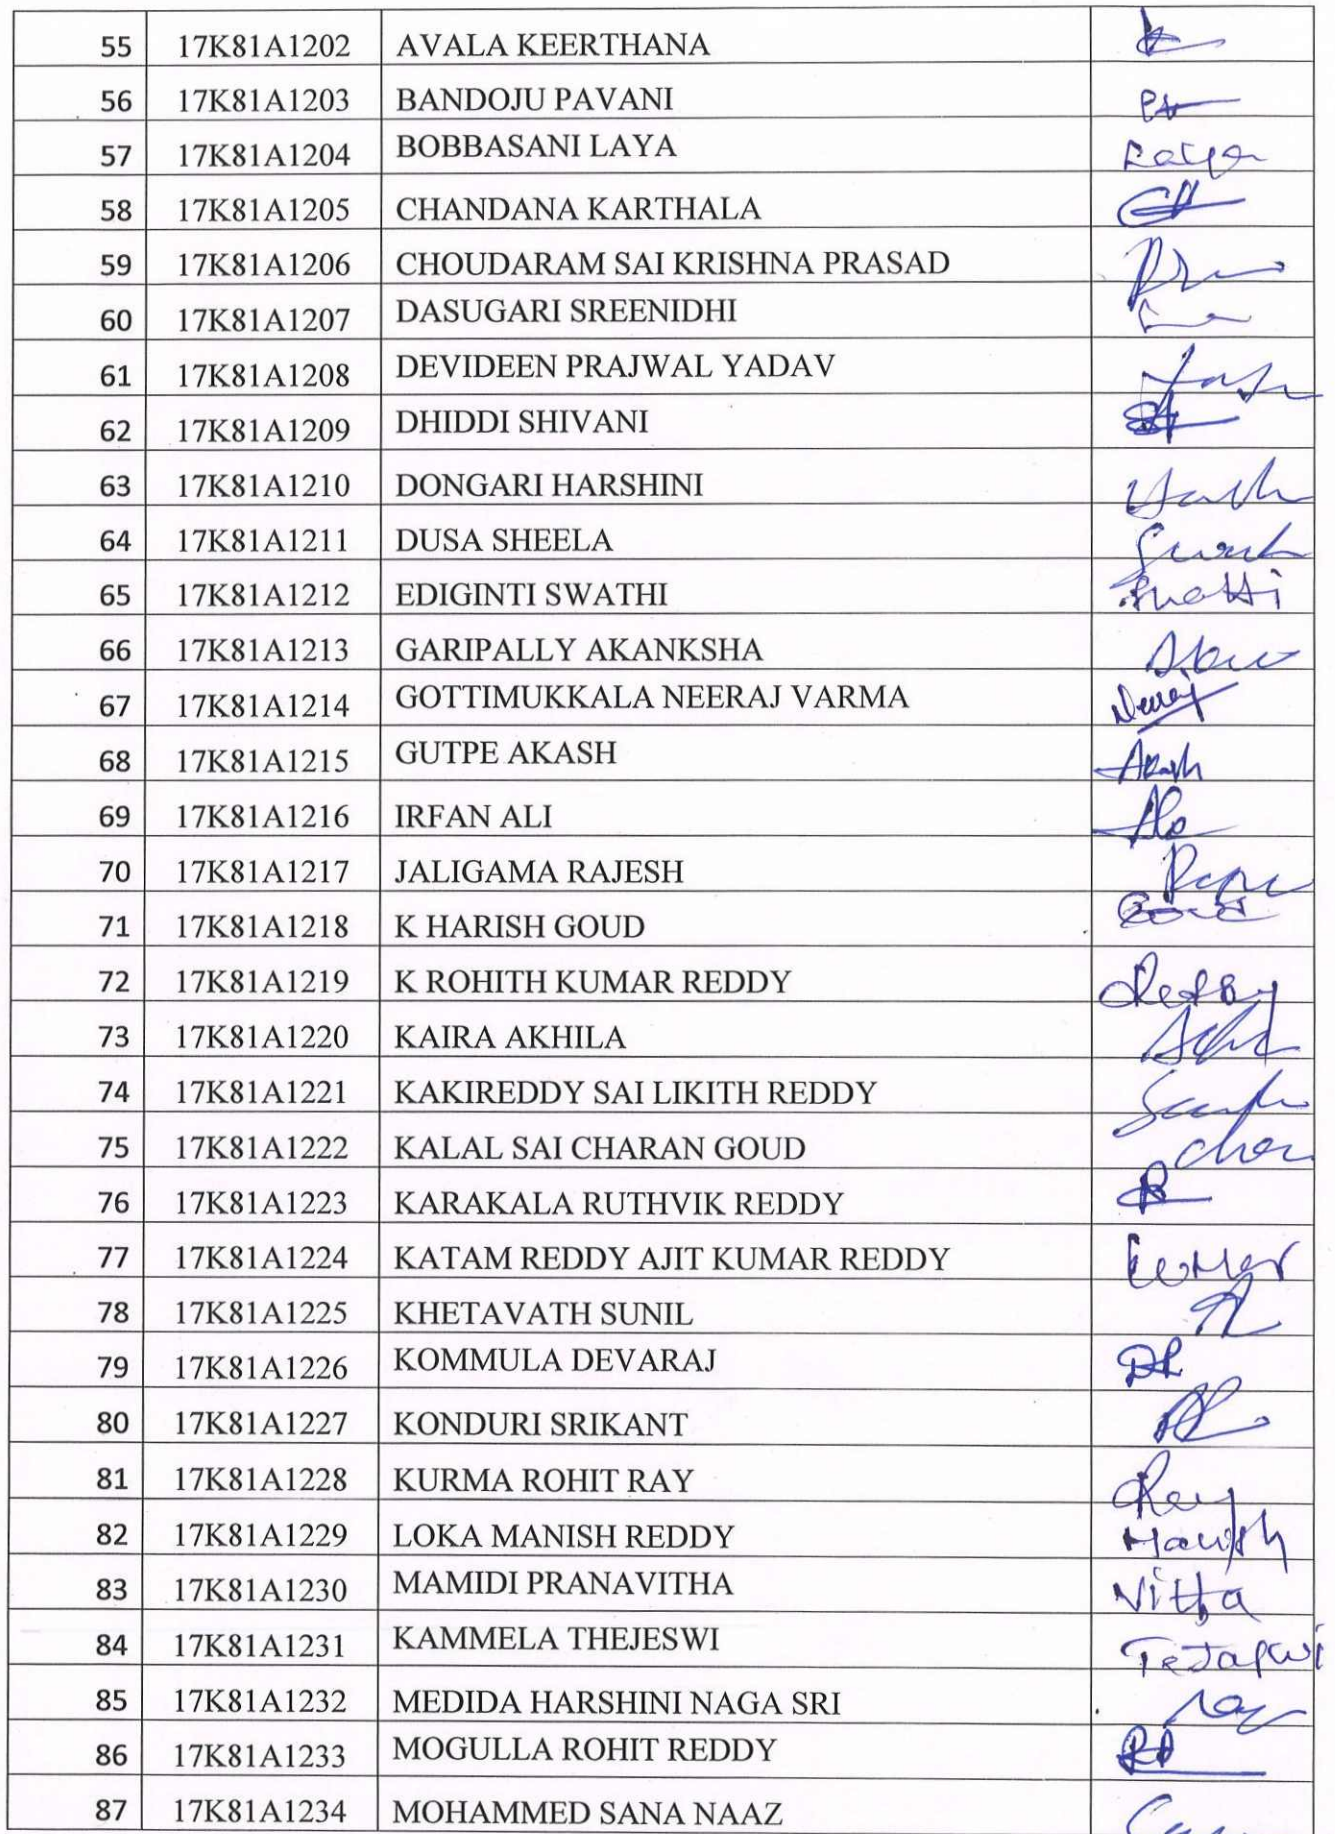 55 17K81A1202 AVALA KEERTHANA
56 17K81A1203 BANDOJU PAVANI
57 17K81A1204 BOBBASANI LAYA
58 17K81A1205 CHANDANA KARTHALA
59 17K81A1206 CHOUDARAM SAI KRISHNA PRASAD
60 17K81A1207 DASUGARI SREENIDHI
61 17K81A1208 DEVIDEEN PRAJWAL YADAV
62 17K81A1209 DHIDDI SHIVANI
63 17K81A1210 DONGARI HARSHINI
64 17K81A1211 DUSA SHEELA
65 17K81A1212 EDIGINTI SWATHI
66 17K81A1213 GARIPALLY AKANKSHA
67 17K81A1214 GOTTIMUKKALA NEERAJ VARMA Neeraj
68 17K81A1215 GUTPE AKASH Akash
69 17K81A1216 IRFAN ALI
70 17K81A1217 JALIGAMA RAJESH
71 17K81A1218 K HARISH GOUD
72 17K81A1219 K ROHITH KUMAR REDDY Reddy
73 17K81A1220 KAIRA AKHILA
74 17K81A1221 KAKIREDDY SAI LIKITH REDDY
75 17K81A1222 KALAL SAI CHARAN GOUD
76 17K81A1223 KARAKALA RUTHVIK REDDY
77 17K81A1224 KATAM REDDY AJIT KUMAR REDDY Kumar
78 17K81A1225 KHETAVATH SUNIL
79 17K81A1226 KOMMULA DEVARAJ
80 17K81A1227 KONDURI SRIKANT
81 17K81A1228 KURMA ROHIT RAY Ray
82 17K81A1229 LOKA MANISH REDDY Manish
83 17K81A1230 MAMIDI PRANAVITHA Vitha
84 17K81A1231 KAMMELA THEJESWI
85 17K81A1232 MEDIDA HARSHINI NAGA SRI
86 17K81A1233 MOGULLA ROHIT REDDY
87 17K81A1234 MOHAMMED SANA NAAZ